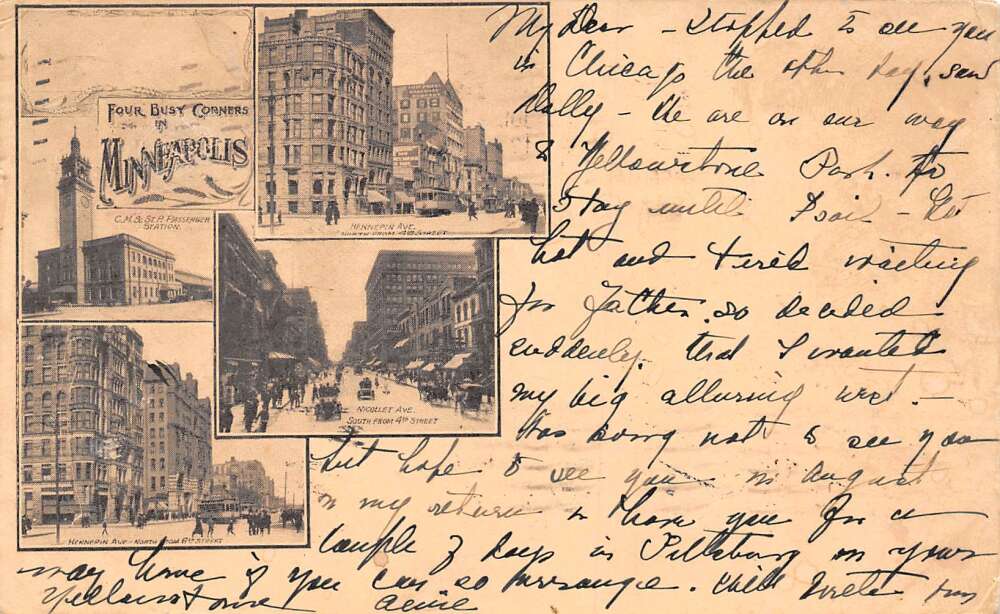 FOUR BUSY CORNERS
IN
MINNEAPOLIS
C.M. & ST. P. PASSENGER
STATION.
HENNEPIN AVE.
NORTH FROM 4TH STREET
NICOLLET AVE.
SOUTH FROM 4TH STREET
HENNEPIN AVE - NORTH FROM 6TH STREET
My Dear - Stopped to see you
in Chicago the other day, saw
Dolly - We are on our way
to Yellowstone Park. To
stay until I sail -
hot and tired waiting
for Father, so decided
suddenly. that I wanted
my big alluring west. -
Was sorry not to see you
but hope to see you in August
on my return or have you for a
couple of days in Pittsburg on your
way home if you can so arrange. Will write from
Yellowstone